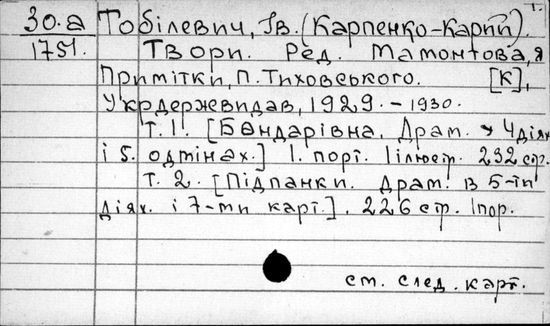 т.
30.а Тобілевич, Ів. (Карпенко-Карий).
1751. Твори. Ред. Мамонтова, Я
Примітки, П. Тиховського. [К],
Укрдержвидав, 1929. – 1930.
т. 1. [Бондарівна, Драм. у 4 діях
і 5. одмінах.] 1. порт. 1 ілюстр. 232 стр.
т. 2. [Підпанки. Драм. в 5-ти
діях. і 7-ми карт.]. 226 стр. 1 пор.
см. след. карт.